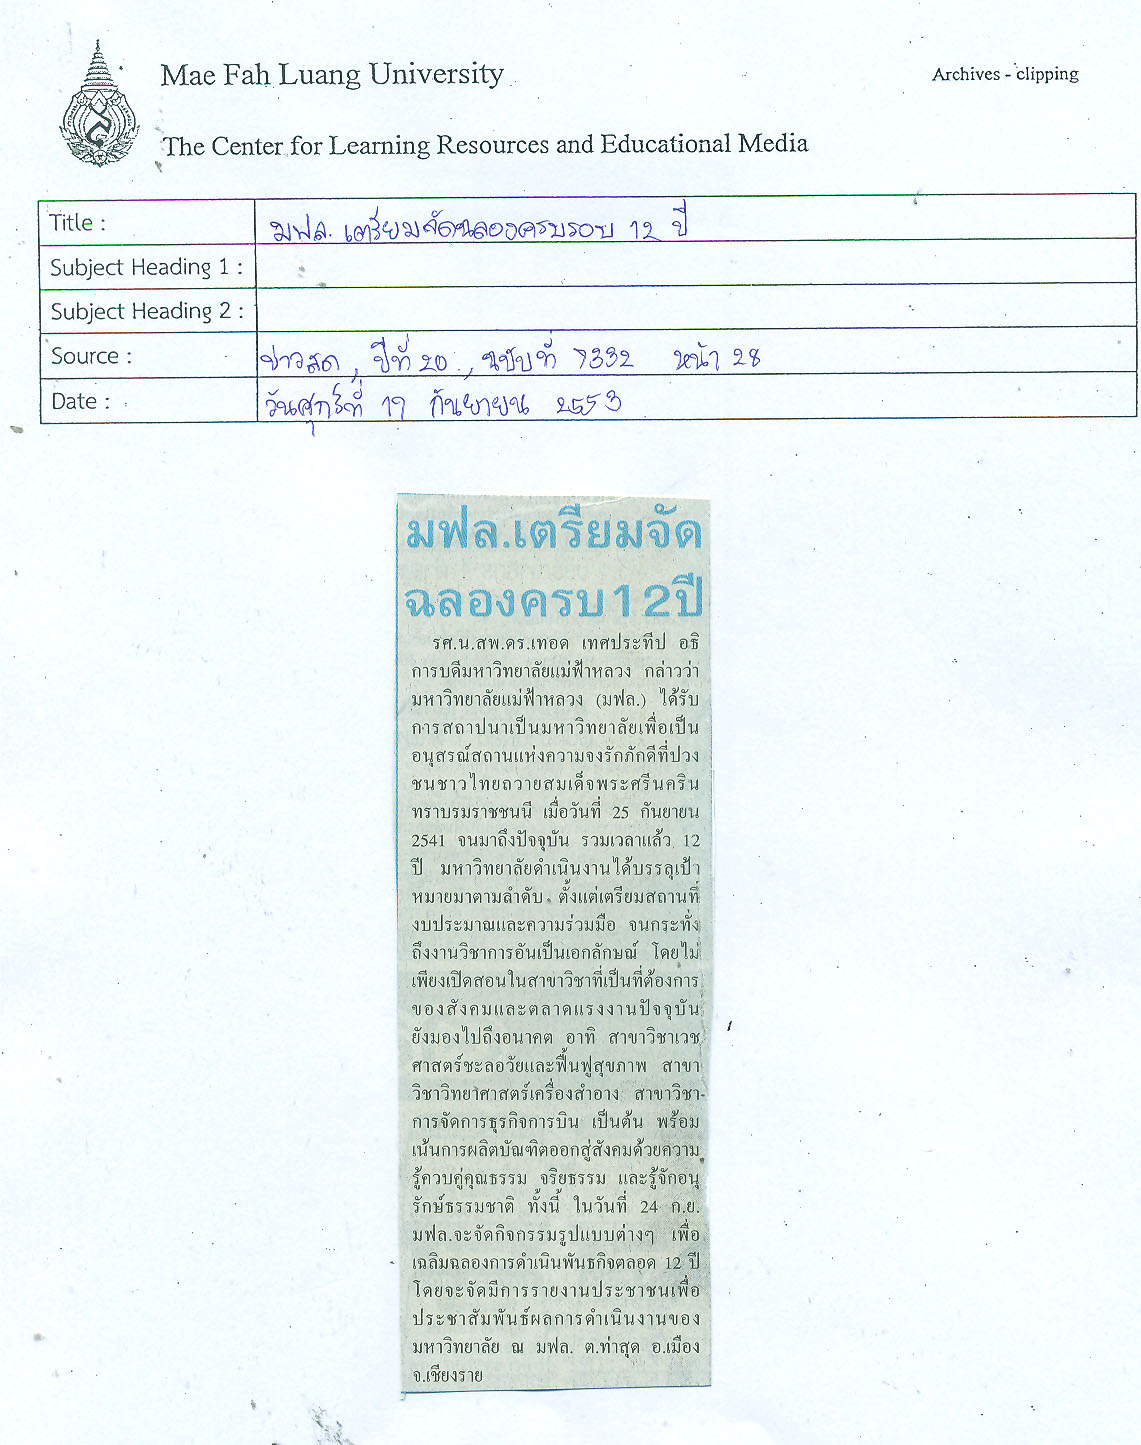 Mae Fah Luang University
Archives - clipping
The Center for Learning Resources and Educational Media
Title : มฟล. เตรียมจัดฉลองครบรอบ 12 ปี
Subject Heading 1 :
Subject Heading 2 :
Source : ข่าวสด, ปีที่ 20, ฉบับที่ 7332 หน้า 28
Date : วันศุกร์ที่ 17 กันยายน 2553
มฟล.เตรียมจัด
ฉลองครบ12ปี
รศ.น.สพ.ดร.เทอด เทศประทีป อธิ
การบดีมหาวิทยาลัยแม่ฟ้าหลวง กล่าวว่า
มหาวิทยาลัยแม่ฟ้าหลวง (มฟล.) ได้รับ
การสถาปนาเป็นมหาวิทยาลัยเพื่อเป็น
อนุสรณ์สถานแห่งความจงรักภักดีที่ปวง
ชนชาวไทยถวายสมเด็จพระศรีนครินทราบรมราชชนนี เมื่อวันที่ 25 กันยายน
2541 จนมาถึงปัจจุบัน รวมเวลาแล้ว 12
ปี มหาวิทยาลัยดำเนินงานได้บรรลุเป้า
หมายมาตามลำดับ ตั้งแต่เตรียมสถานที่
งบประมาณและความร่วมมือ จนกระทั่ง
ถึงงานวิชาการอันเป็นเอกลักษณ์ โดยไม่
เพียงเปิดสอนในสาขาวิชาที่เป็นที่ต้องการ
ของสังคมและตลาดแรงงานปัจจุบัน
ยังมองไปถึงอนาคต อาทิ สาขาวิชาเวช
ศาสตร์ชะลอวัยและฟื้นฟูสุขภาพ สาขา
วิชาวิทยาศาสตร์เครื่องสำอาง สาขาวิชา-
การจัดการธุรกิจการบิน เป็นต้น พร้อม
เน้นการผลิตบัณฑิตออกสู่สังคมด้วยความ
รู้ควบคู่คุณธรรม จริยธรรม และรู้จักอนุ
รักษ์ธรรมชาติ ทั้งนี้ ในวันที่ 24 ก.ย.
มฟล.จะจัดกิจกรรมรูปแบบต่างๆ เพื่อ
เฉลิมฉลองการดำเนินพันธกิจตลอด 12 ปี
โดยจะจัดมีการรายงานประชาชนเพื่อ
ประชาสัมพันธ์ผลการดำเนินงานของ
มหาวิทยาลัย ณ มฟล. ต.ท่าสุด อ.เมือง
จ.เชียงราย